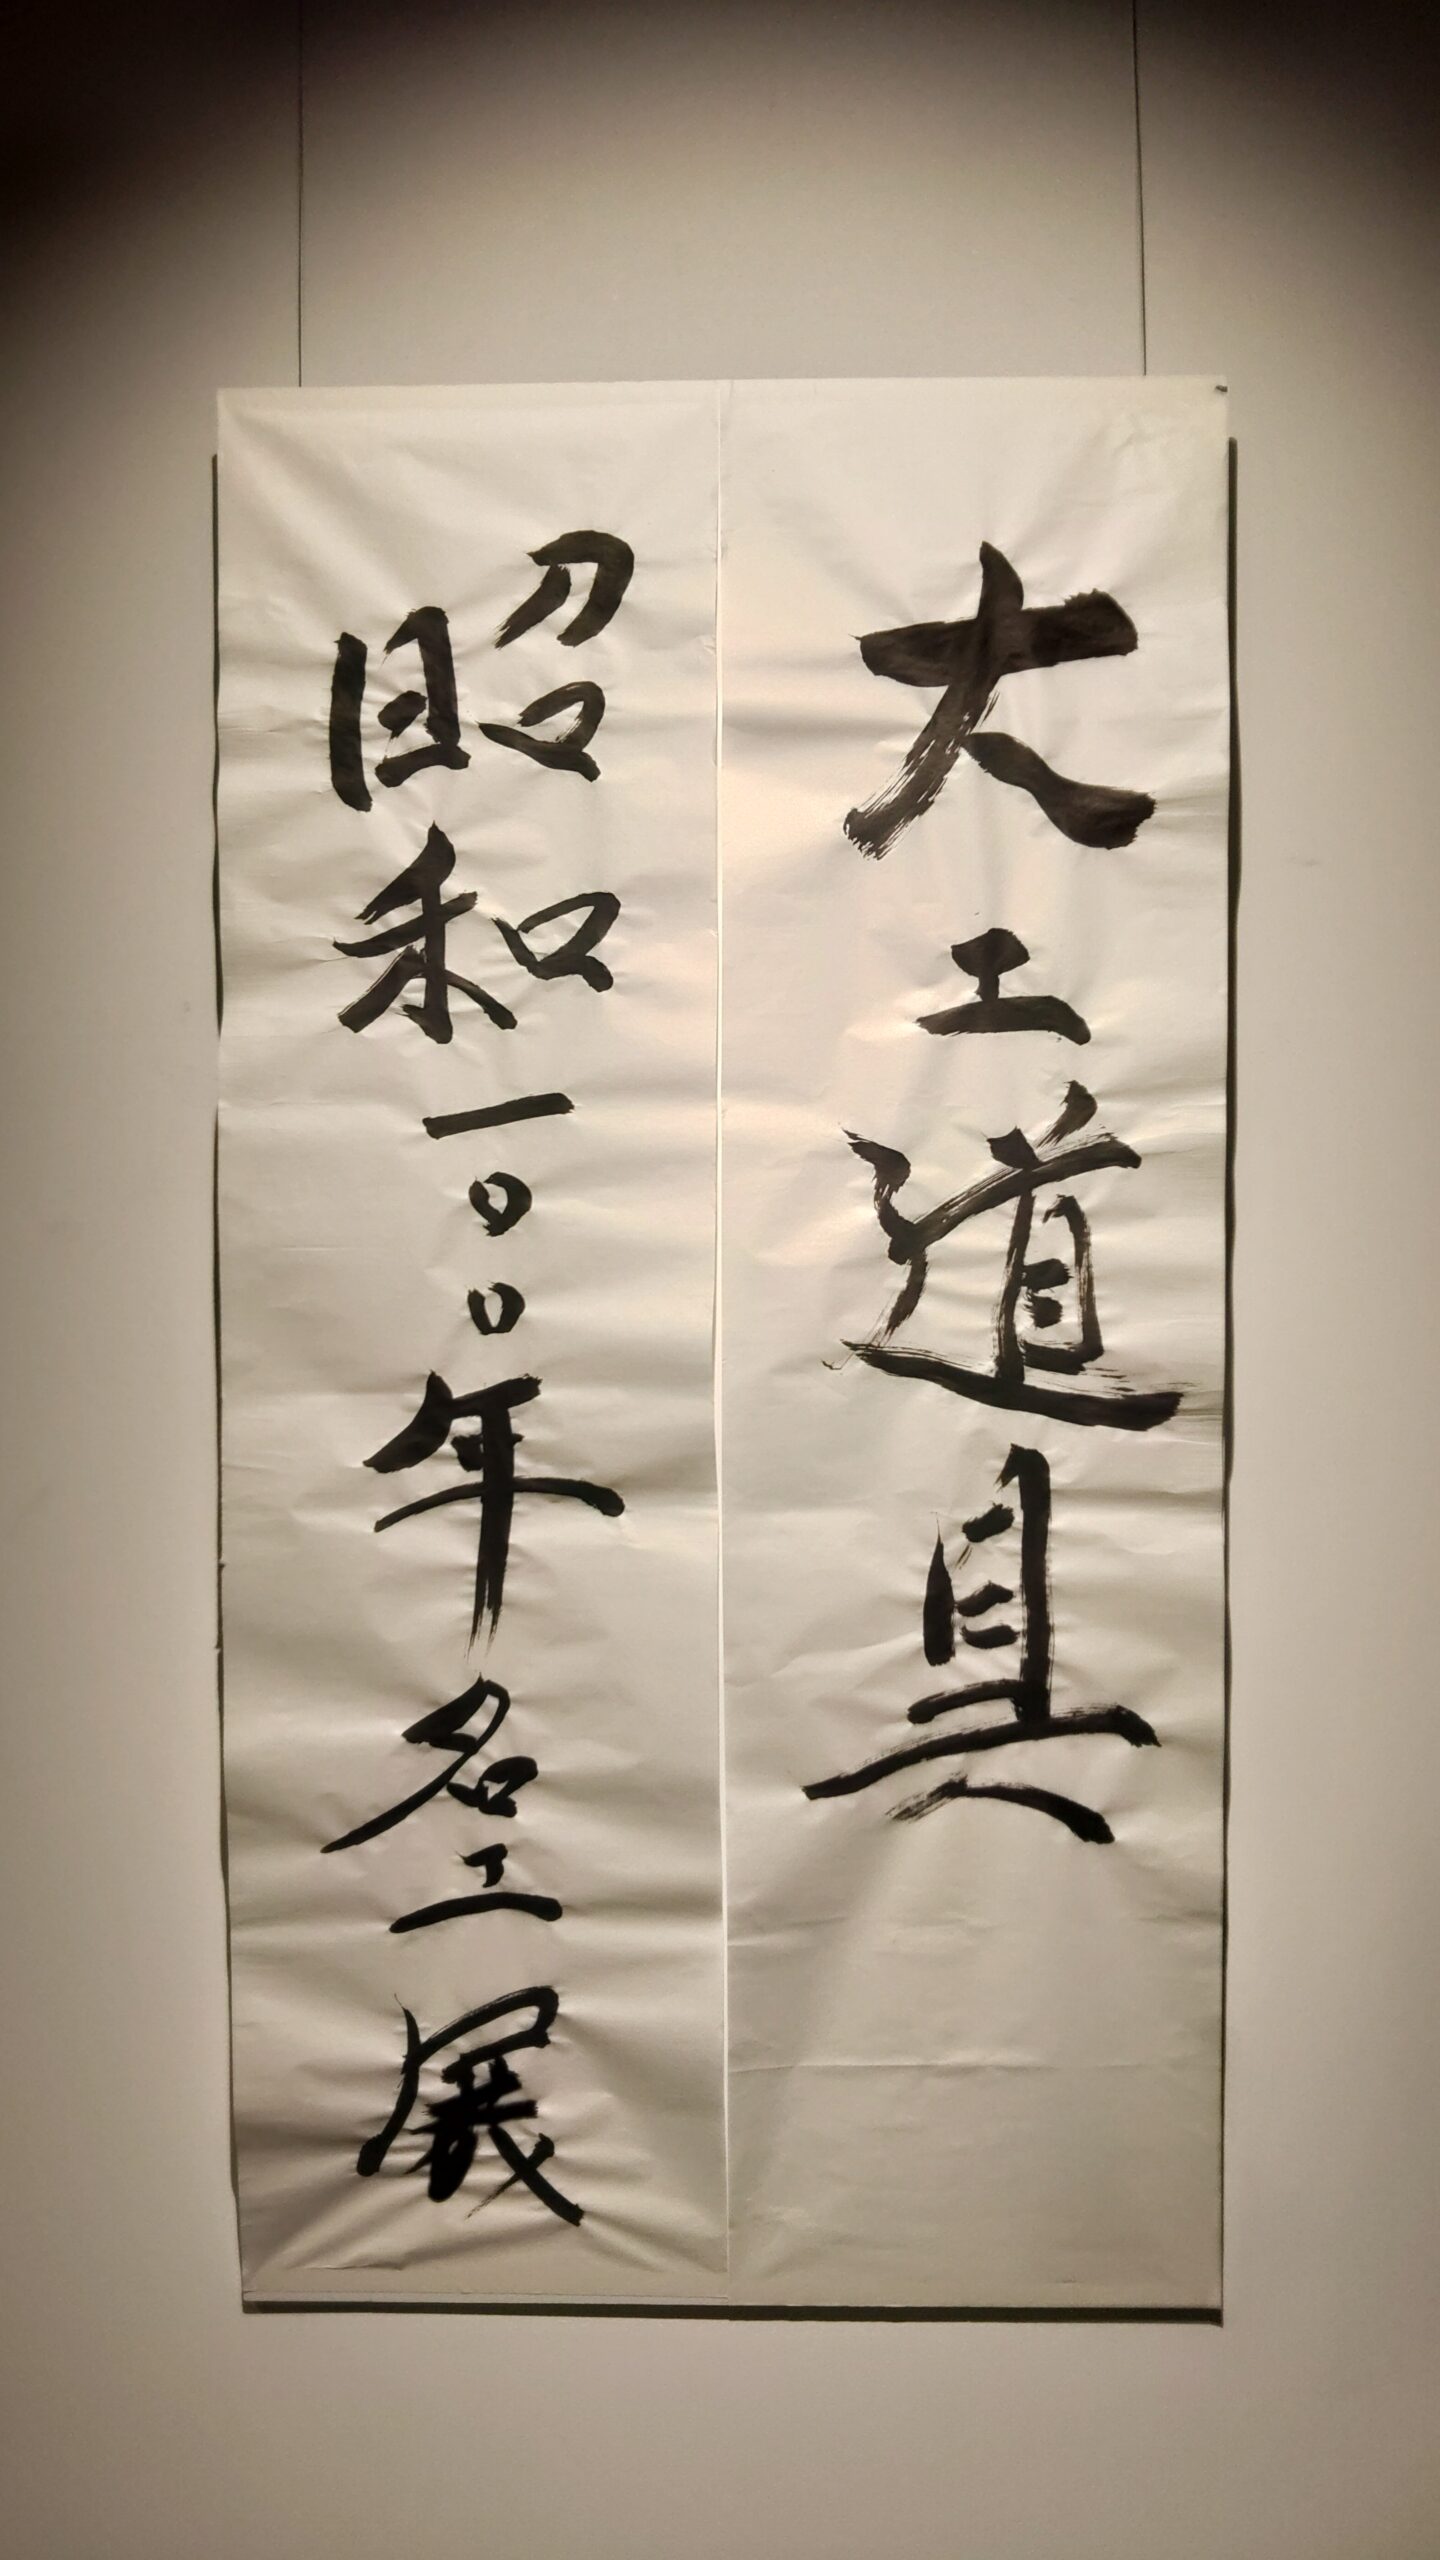 大工道具
昭和一〇〇年名工展